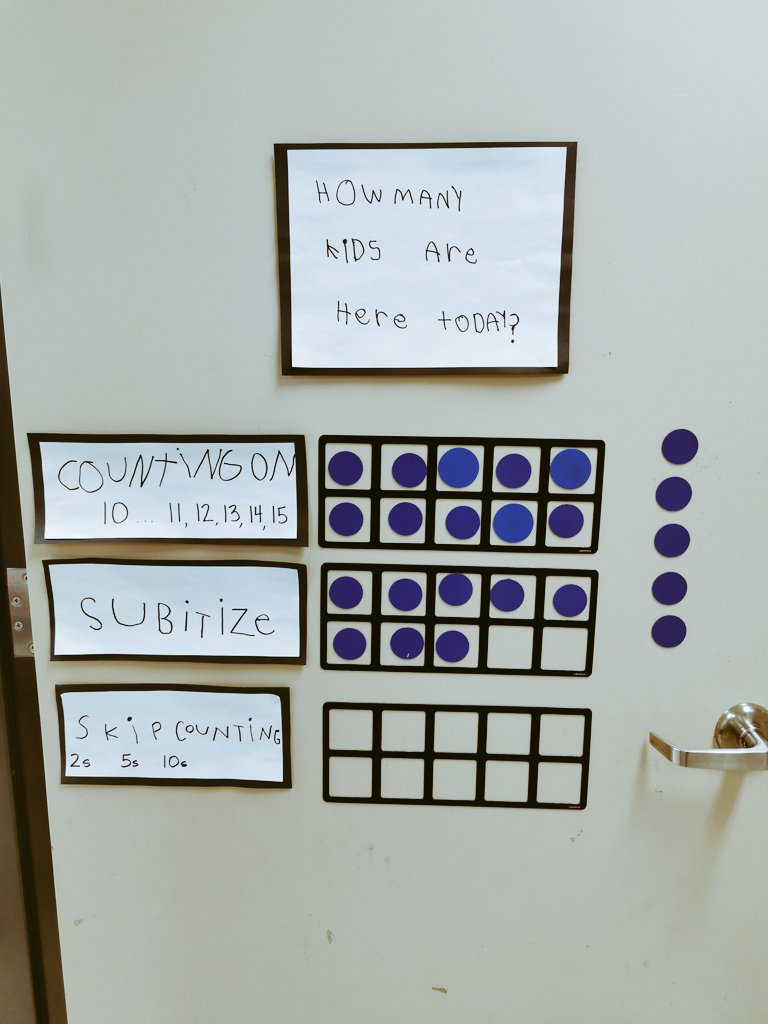 HOW MANY
KIDS Are
Here TODAY?
COUNTiNG ON
10... 11, 12, 13, 14, 15
SUBITIZE
SKiP COUNTING
2s 5s 10s